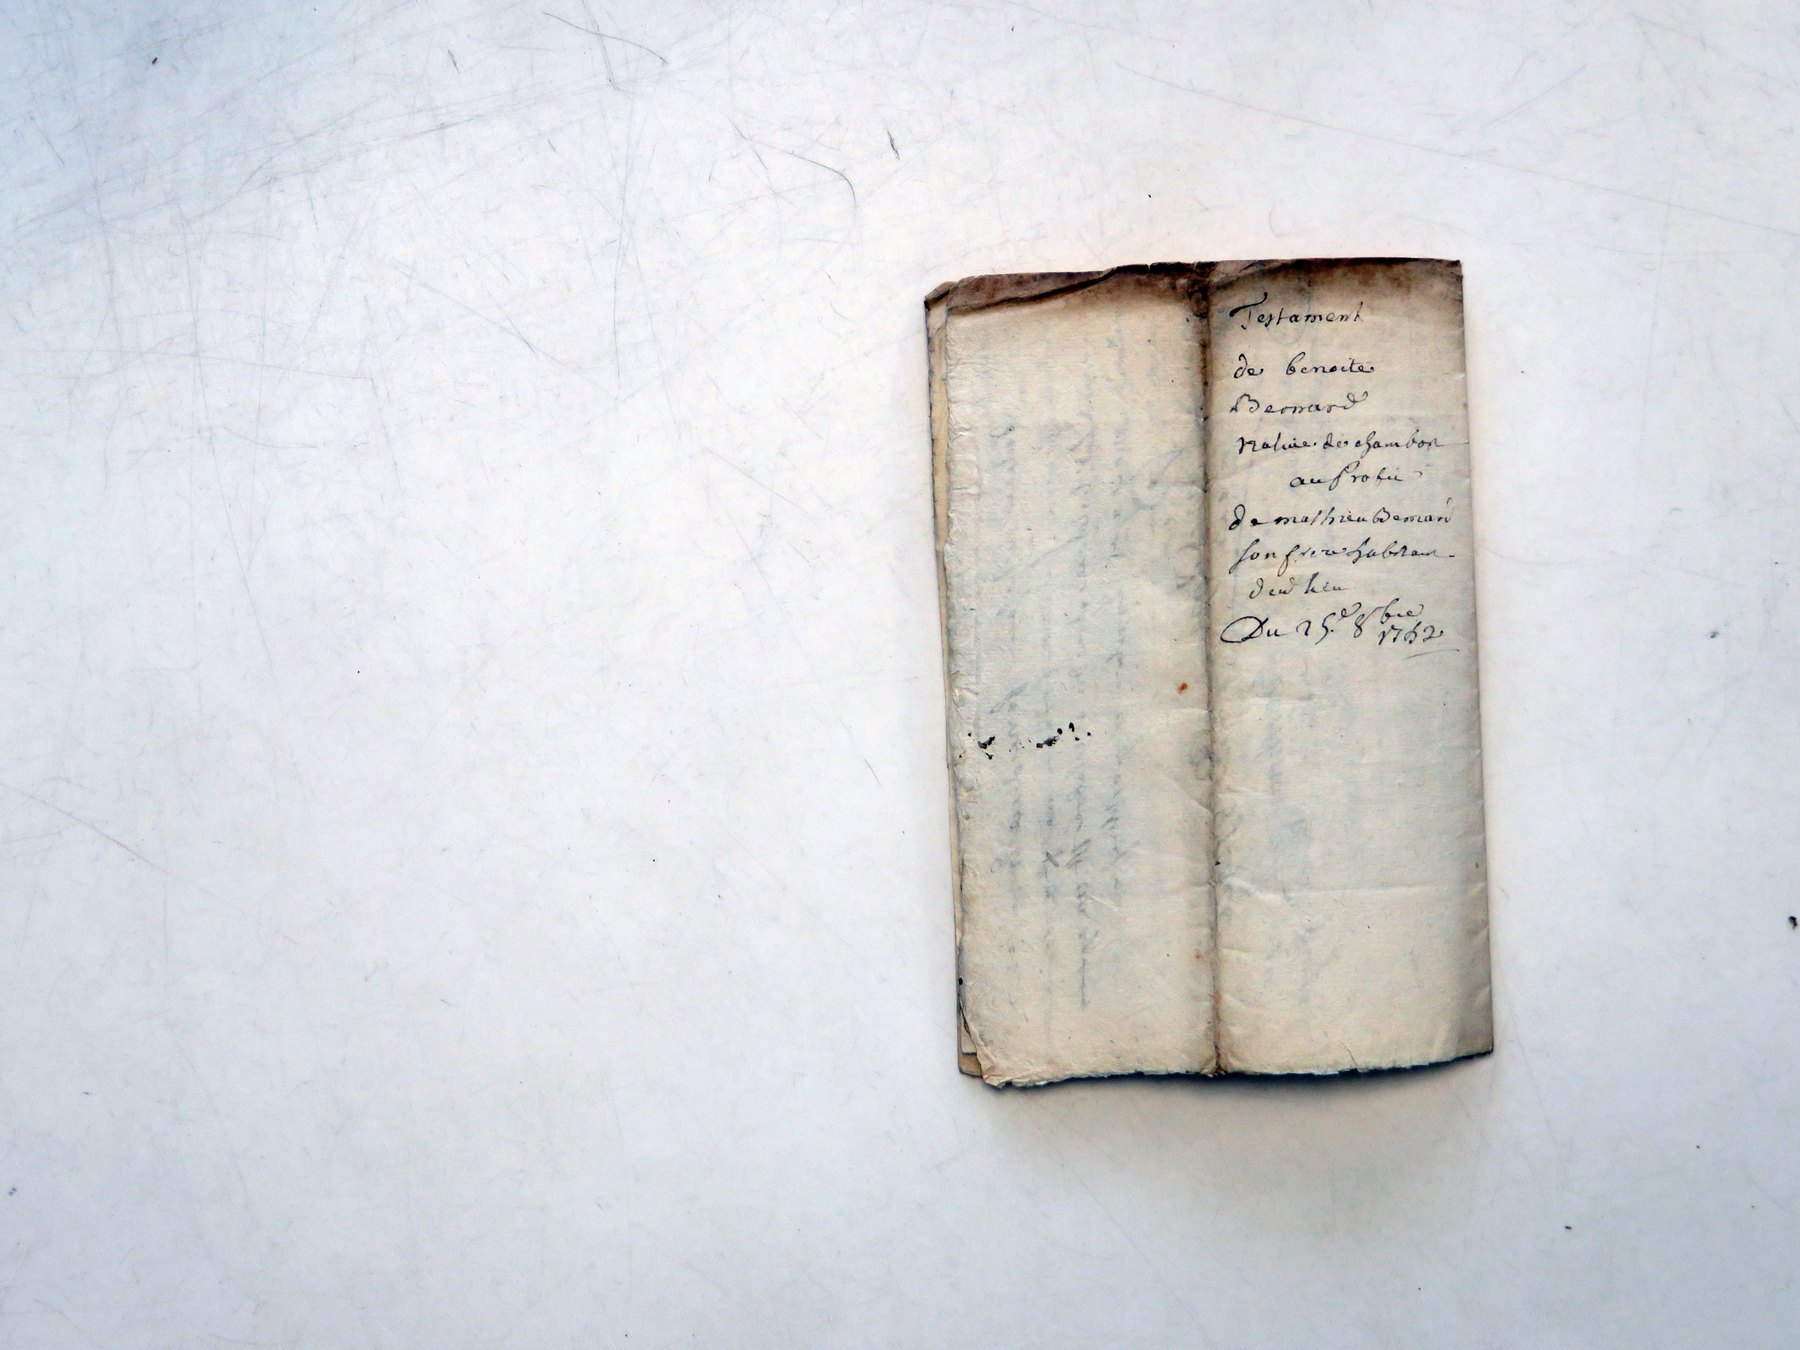 Testament
de benoite
Bernard
native de chambon
au profit
de mathieu Bernard
son frere habitant
dud lieu
Du 25.e 8bre 1762